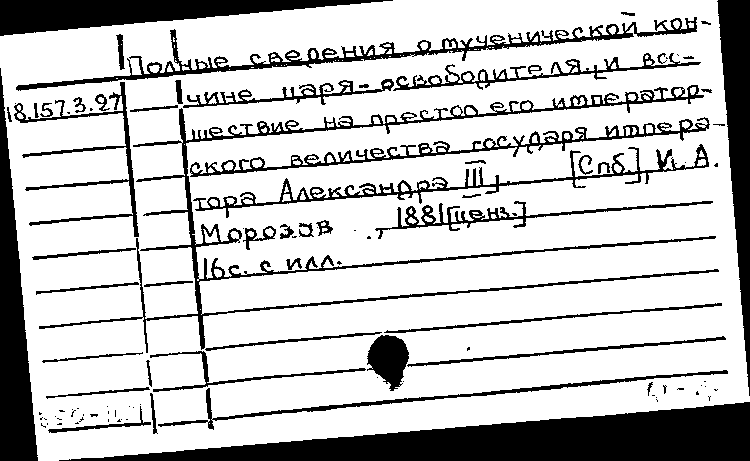 Полные сведения о мученической кон-
18.157.3.27 чине царя-освободителя, и вос-
шествие на престол его император-
ского величества государя импера-
тора Александра III. [Спб.], И. А.
Морозов, 1881 [ценз.]
16с. с илл.